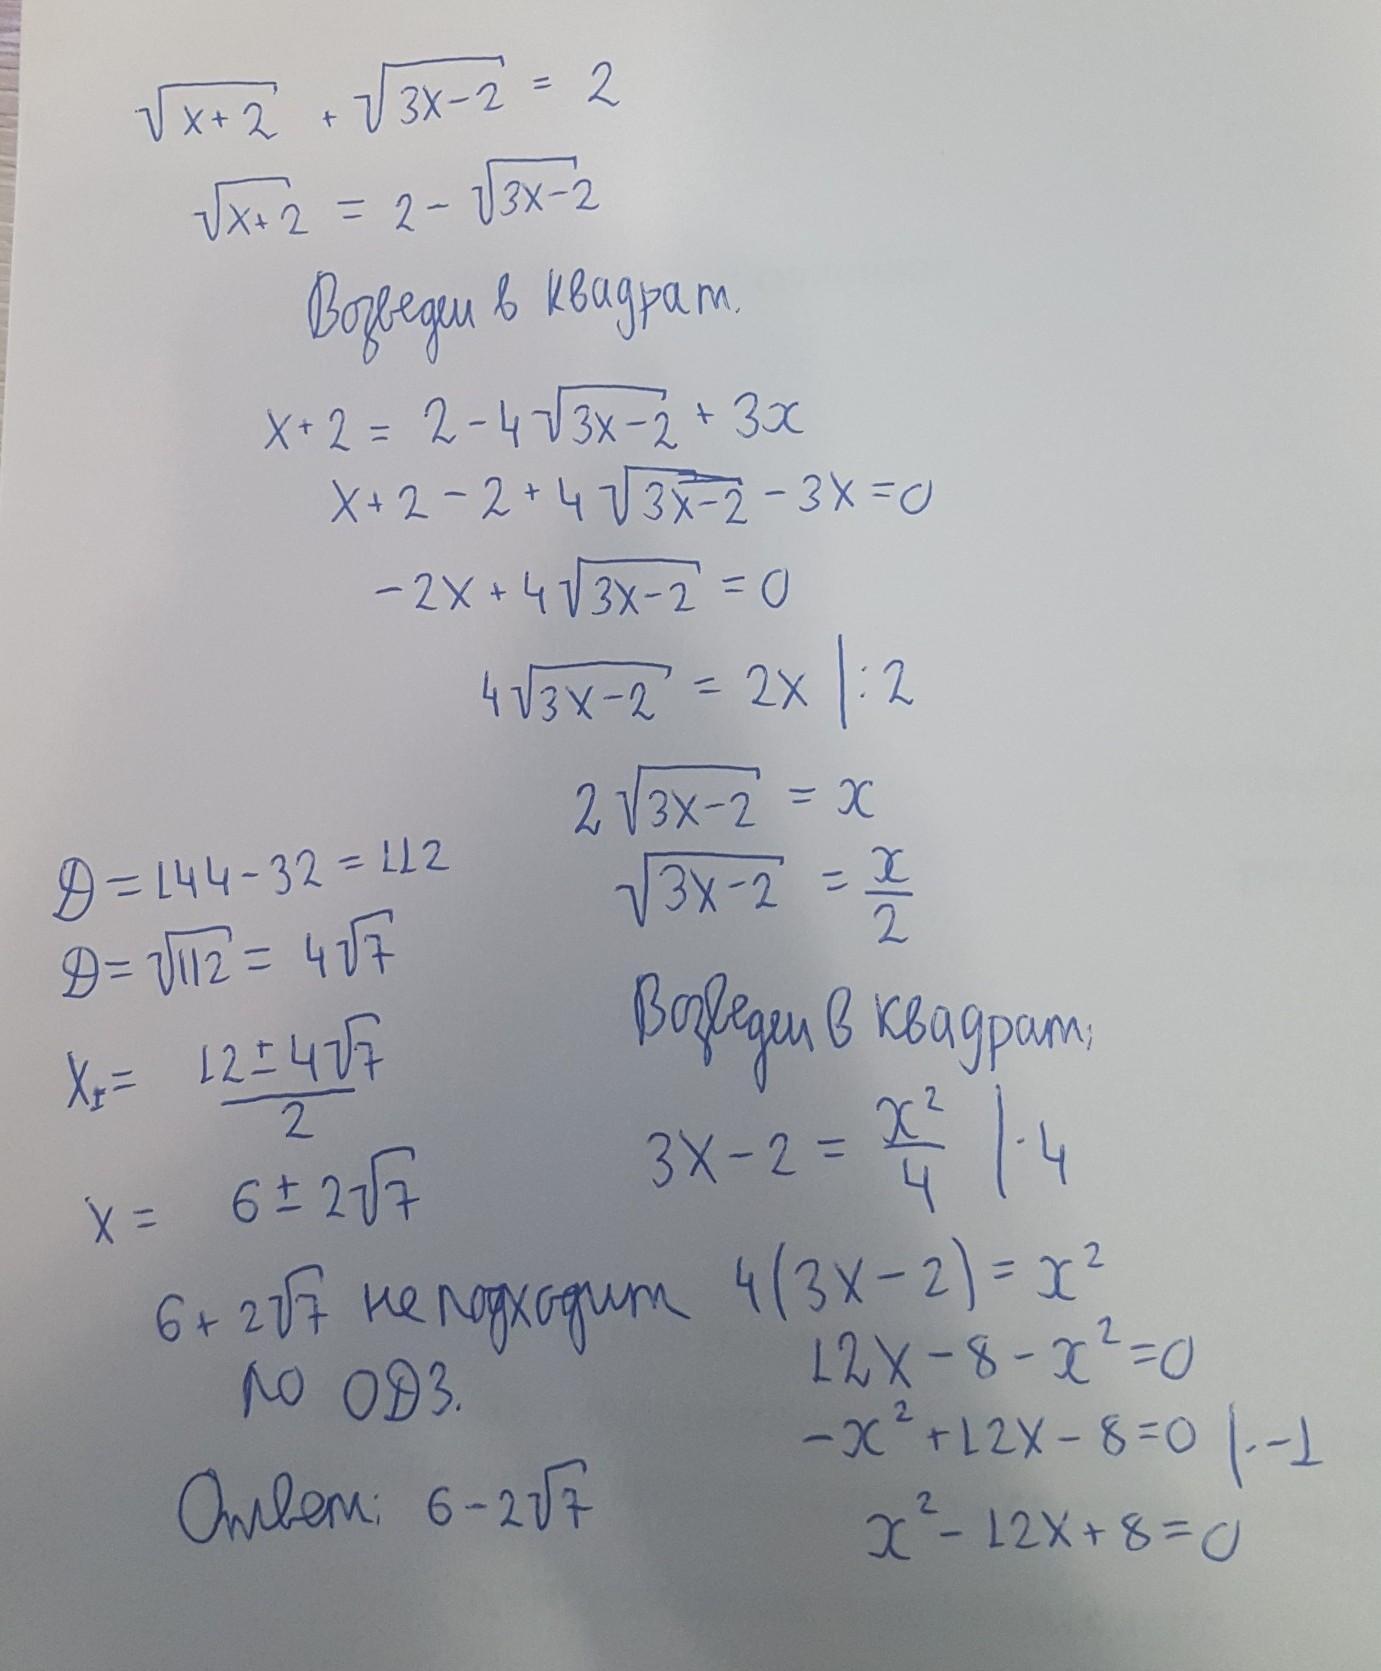 √(x+2) + √(3x-2) = 2
√(x+2) = 2 - √(3x-2)
Возведем в квадрат.
x+2 = 2 - 4√(3x-2) + 3x
x+2 - 2 + 4√(3x-2) - 3x = 0
-2x + 4√(3x-2) = 0
4√(3x-2) = 2x |:2
2√(3x-2) = x
√(3x-2) = x/2
Возведем в квадрат;
3x - 2 = x²/4 |·4
4(3x-2) = x²
12x - 8 - x² = 0
-x² + 12x - 8 = 0 |·-1
x² - 12x + 8 = 0
D = 144 - 32 = 112
D = √112 = 4√7
x₁ = (12 ± 4√7)/2
x = 6 ± 2√7
6 + 2√7 не подходит
по ОДЗ.
Ответ: 6 - 2√7